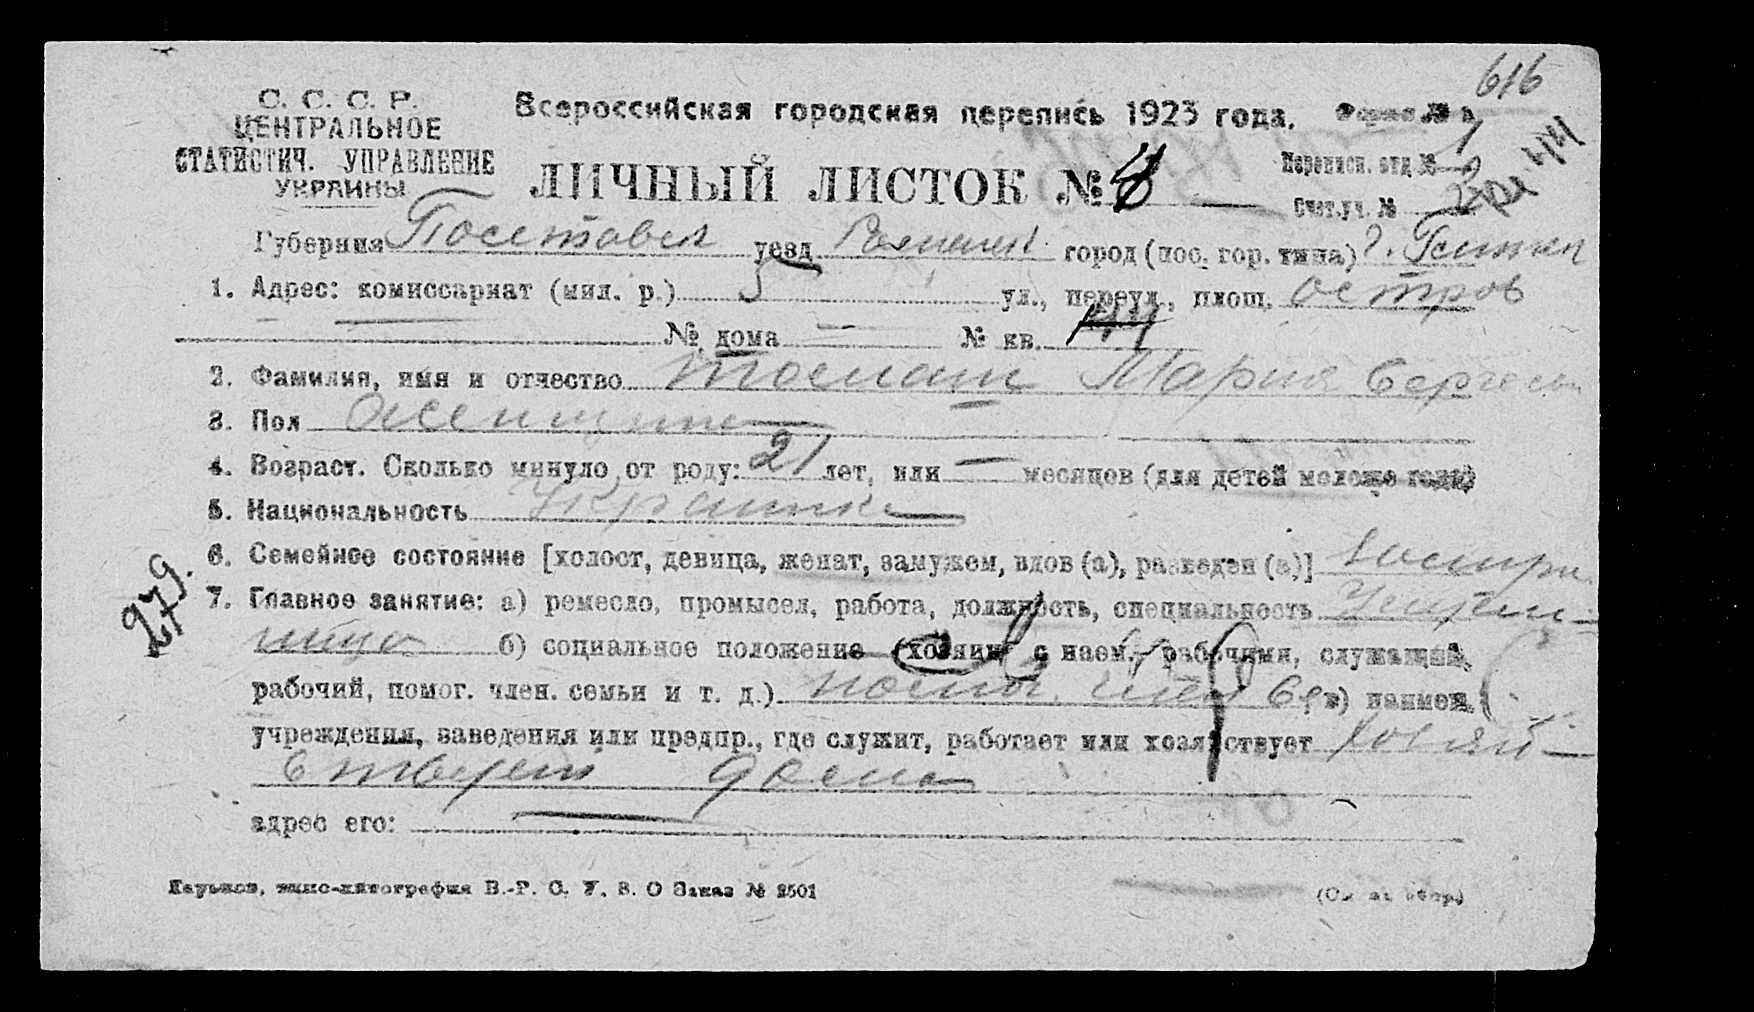 616
С. С. С. Р.
ЦЕНТРАЛЬНОЕ
СТАТИСТИЧ. УПРАВЛЕНИЕ
УКРАИНЫ
Всероссийская городская перепись 1923 года. Форма №
ЛИЧНЫЙ ЛИСТОК №
Переписн. отд №
Счет.уч. №
Губерния Полтавск уезд город (пос. гор. типа)
1. Адрес: комиссариат (мил. р.) 5 ул., переул., площ. остров
№ дома — № кв.
2. Фамилия, имя и отчество Мария
3. Пол женщина
4. Возраст. Сколько минуло от роду: 21 лет, или — месяцев (для детей моложе года)
5. Национальность Украинка
6. Семейное состояние [холост, девица, женат, замужем, вдов (а), разведен (а)]
279.
7. Главное занятие: а) ремесло, промысел, работа, должность, специальность
ница б) социальное положение (хозяин с наем. рабочими, служащий,
рабочий, помог. член. семьи и т. д.) помог. член в) наимен.
учреждения, заведения или предпр., где служит, работает или хозяйствует хозяй-
ствует дома
адрес его:
Харьков, типо-литография В.-Р. С. У. В. О Заказ № 2501
(См на обор.)